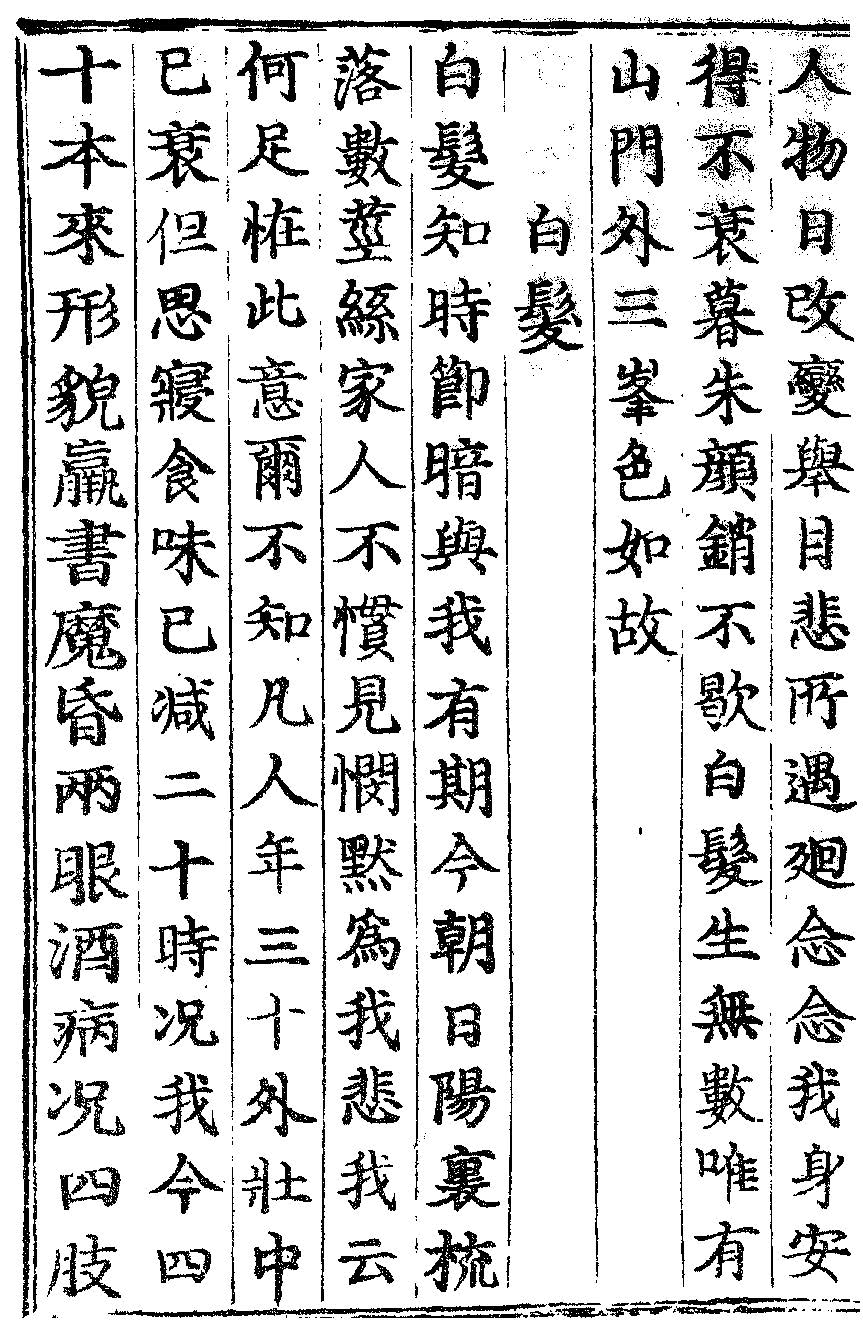 人物日改變舉目悲所遇廻念念我身安
得不衰暮朱顔銷不歇白髮生無數唯有
山門外三峯色如故
白髮
白髮知時節暗與我有期今朝日陽裏梳
落數莖絲家人不慣見憫默爲我悲我云
何足恠此意爾不知凡人年三十外壯中
已衰但思寢食味已减二十時况我今四
十本來形貌羸書魔昏兩眼酒病况四肢